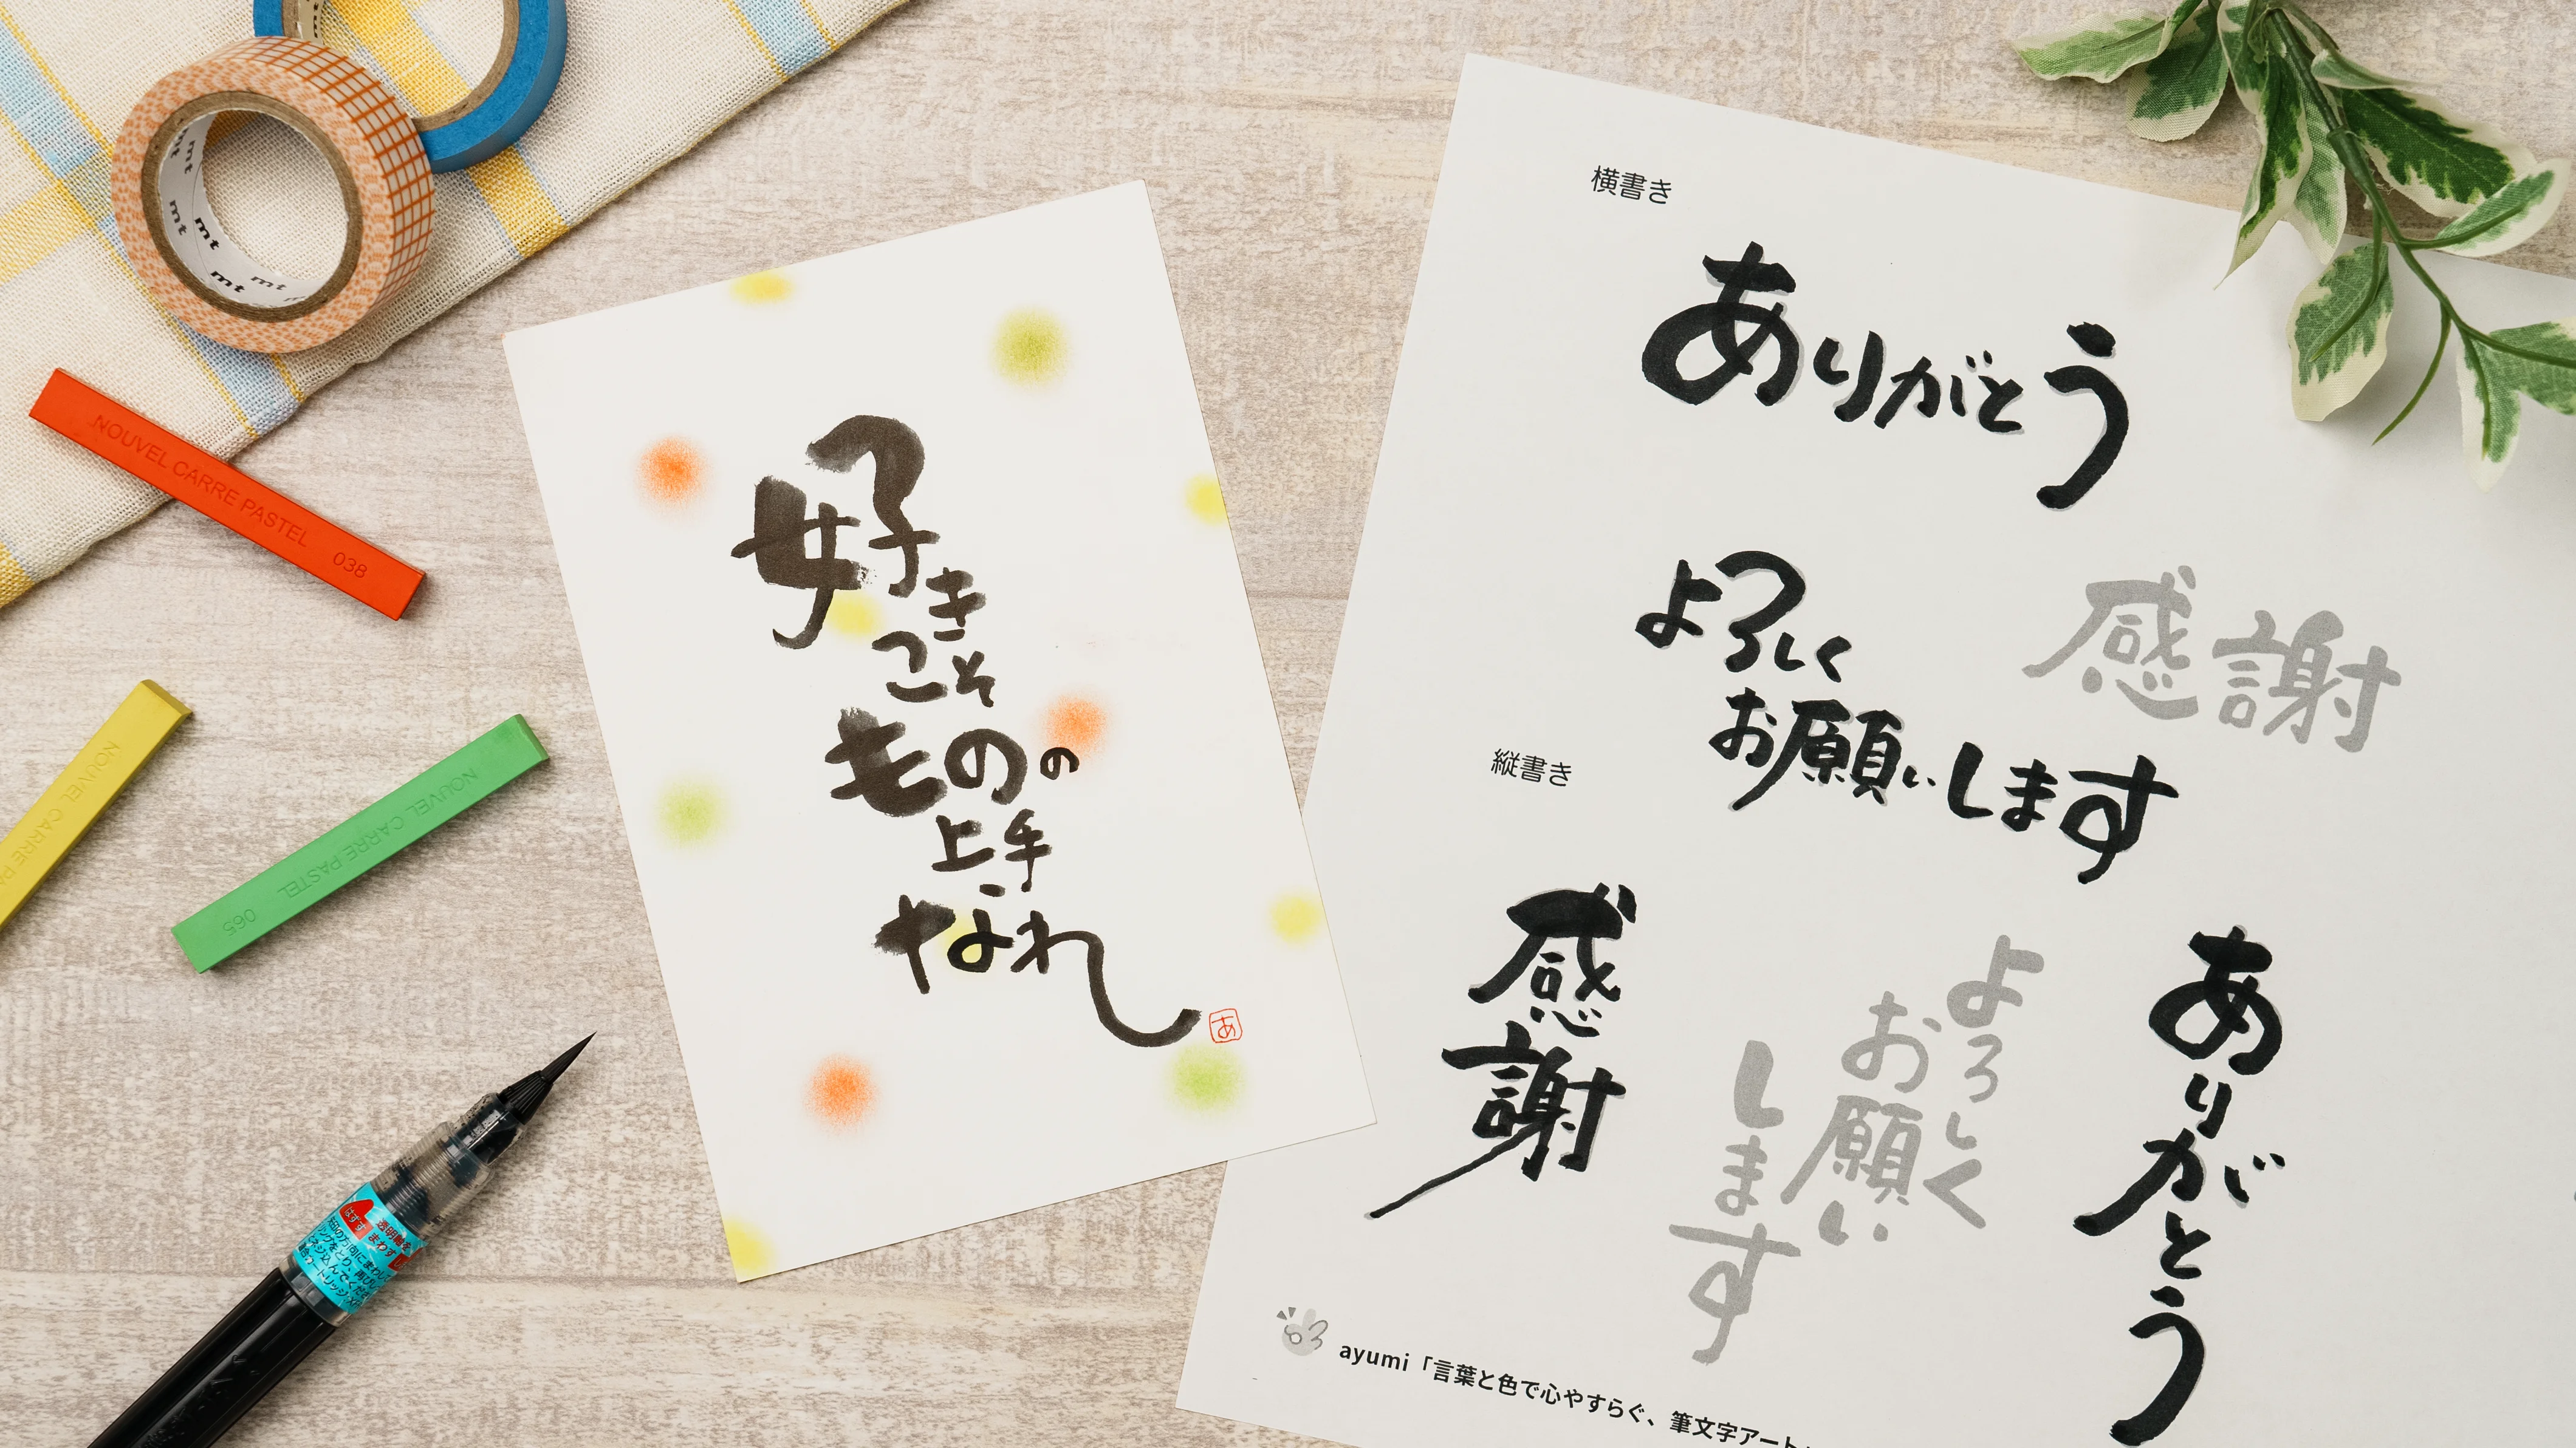 mt mt mt mt mt
mt
NOUVEL CARRE PASTEL 038
NOUVEL CARRE PA
NOUVEL CARRE PASTEL 065
好き
こそ
ものの
上手
なれ
あ
横書き
ありがとう
よろしく
お願いします
感謝
縦書き
ありがとう
よろしく
お願い
します
感謝
ayumi「言葉と色で心やすらぐ、筆文字アート
はずす
透明軸を
まわす